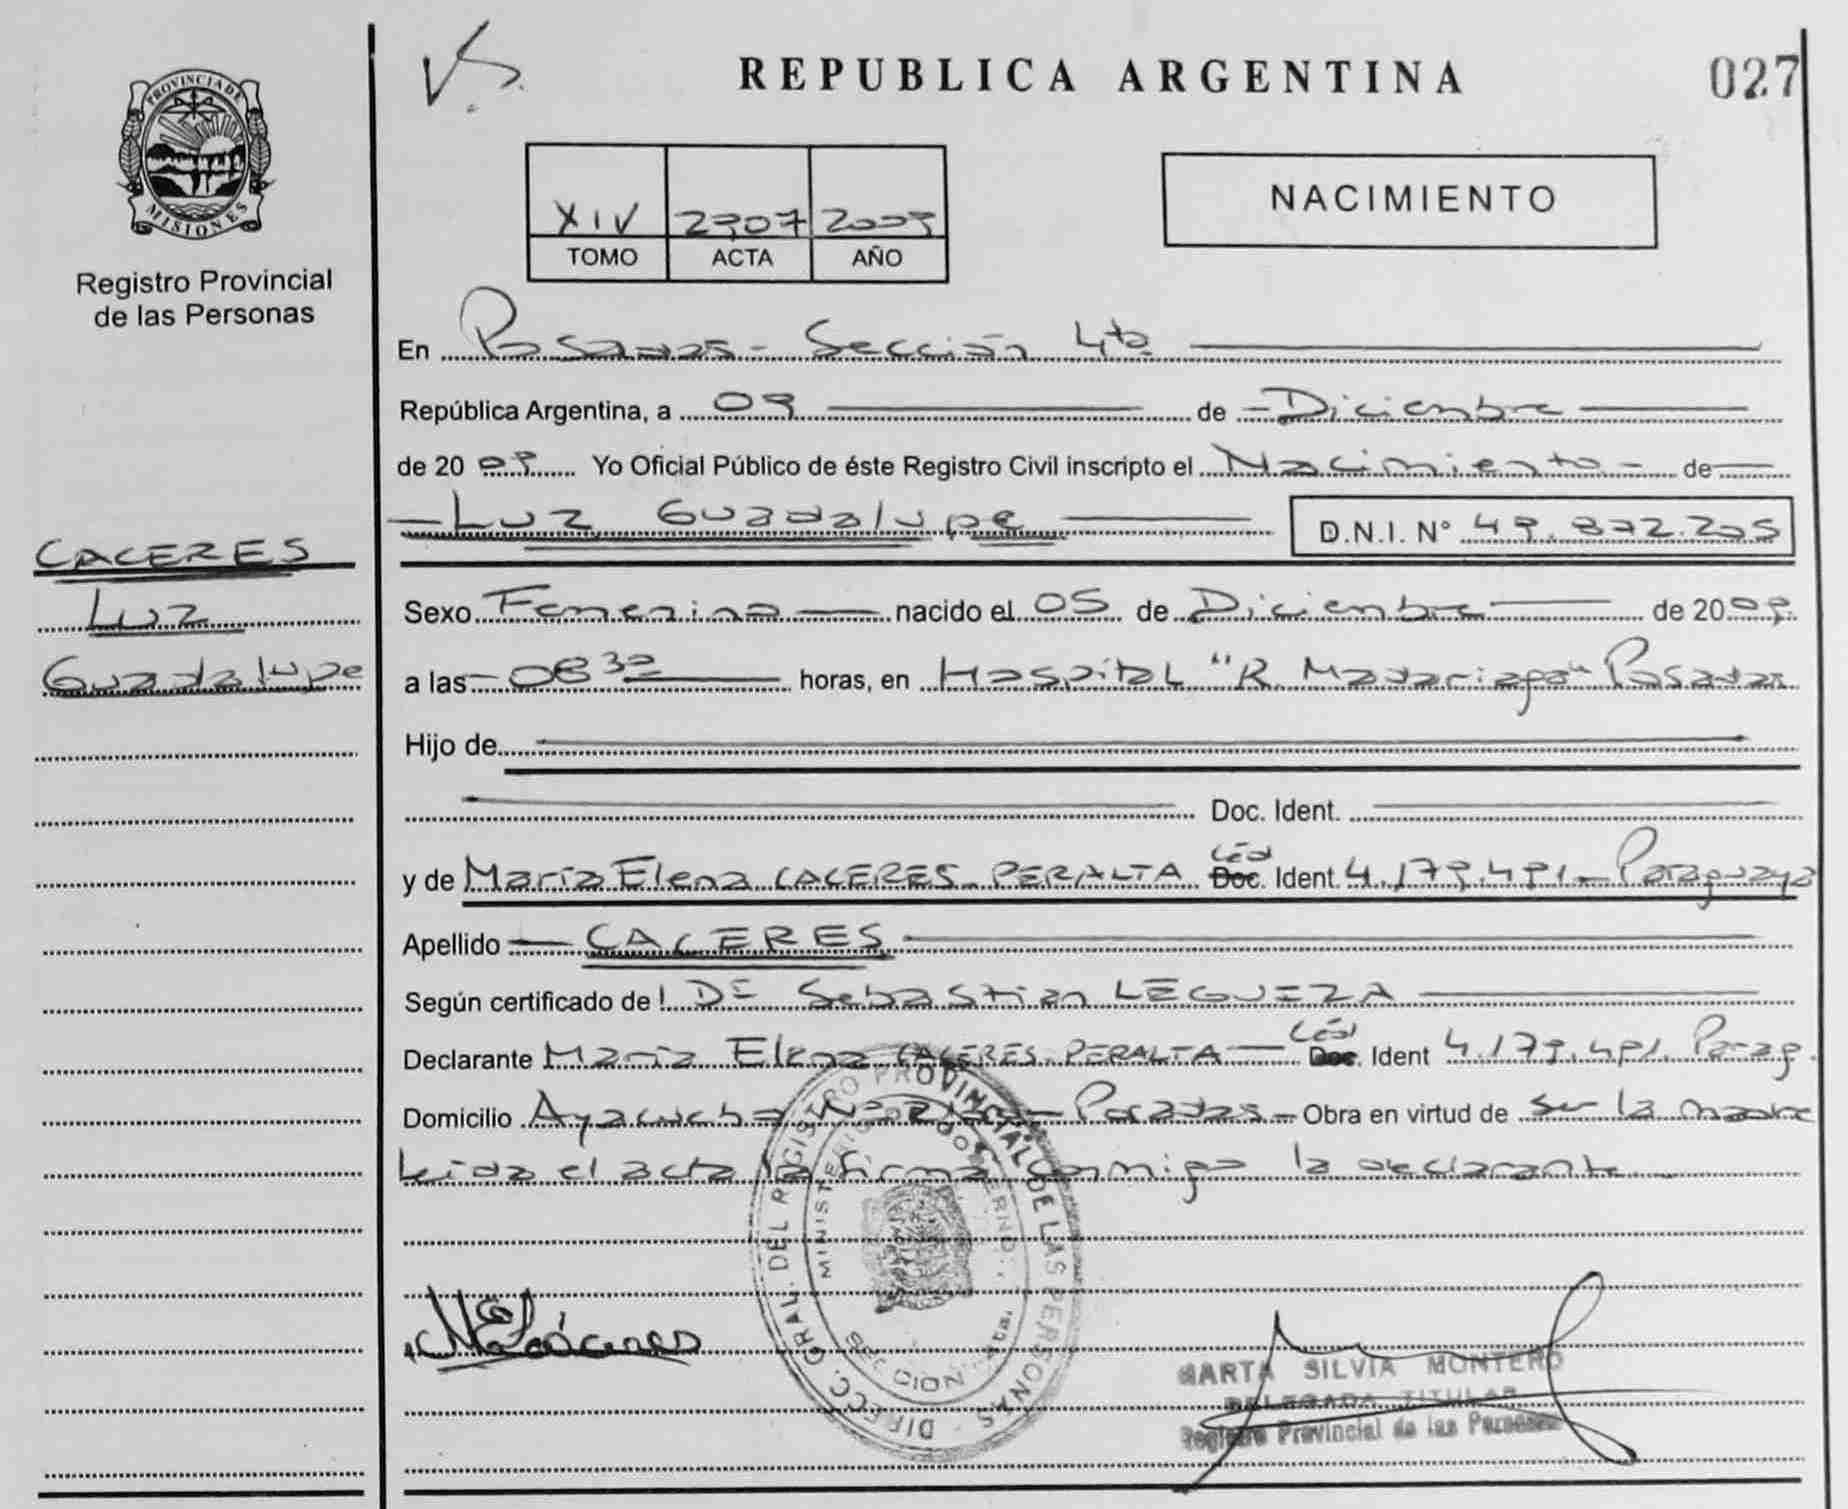 V.S.
REPUBLICA ARGENTINA
027
PROVINCIA DE
MISIONES
Registro Provincial
de las Personas
XIV 2707 2009
TOMO ACTA AÑO
NACIMIENTO
En Posadas - Sección 4ta
República Argentina, a 09 de Diciembre
de 20 09 Yo Oficial Público de éste Registro Civil inscripto el Nacimiento de
Luz Guadalupe D.N.I. N° 49.872.205
CACERES
Luz
Guadalupe
Sexo Femenino nacido el 05 de Diciembre de 20 09
a las 08 30 horas, en Hospital "R. Madariaga" Posadas
Hijo de
Doc. Ident.
y de María Elena CACERES PERALTA Céd Doc. Ident. 4.179.491 - Paraguaya
Apellido CACERES
Según certificado de Sebastian LEGUIZA
Declarante María Elena CACERES PERALTA Céd Doc. Ident 4.179.491 Parag.
Domicilio Ayacucho Posadas - Obra en virtud de ser la madre
Leida el acta la firma conmigo la declarante
DIRECC. GRAL. DEL REGISTRO PROVINCIAL DE LAS PERSONAS
MINISTERIO DE GOBIERNO
SECCION 4ta.
MECáceres
MARTA SILVIA MONTERO
DELEGADA TITULAR
Registro Provincial de las Personas